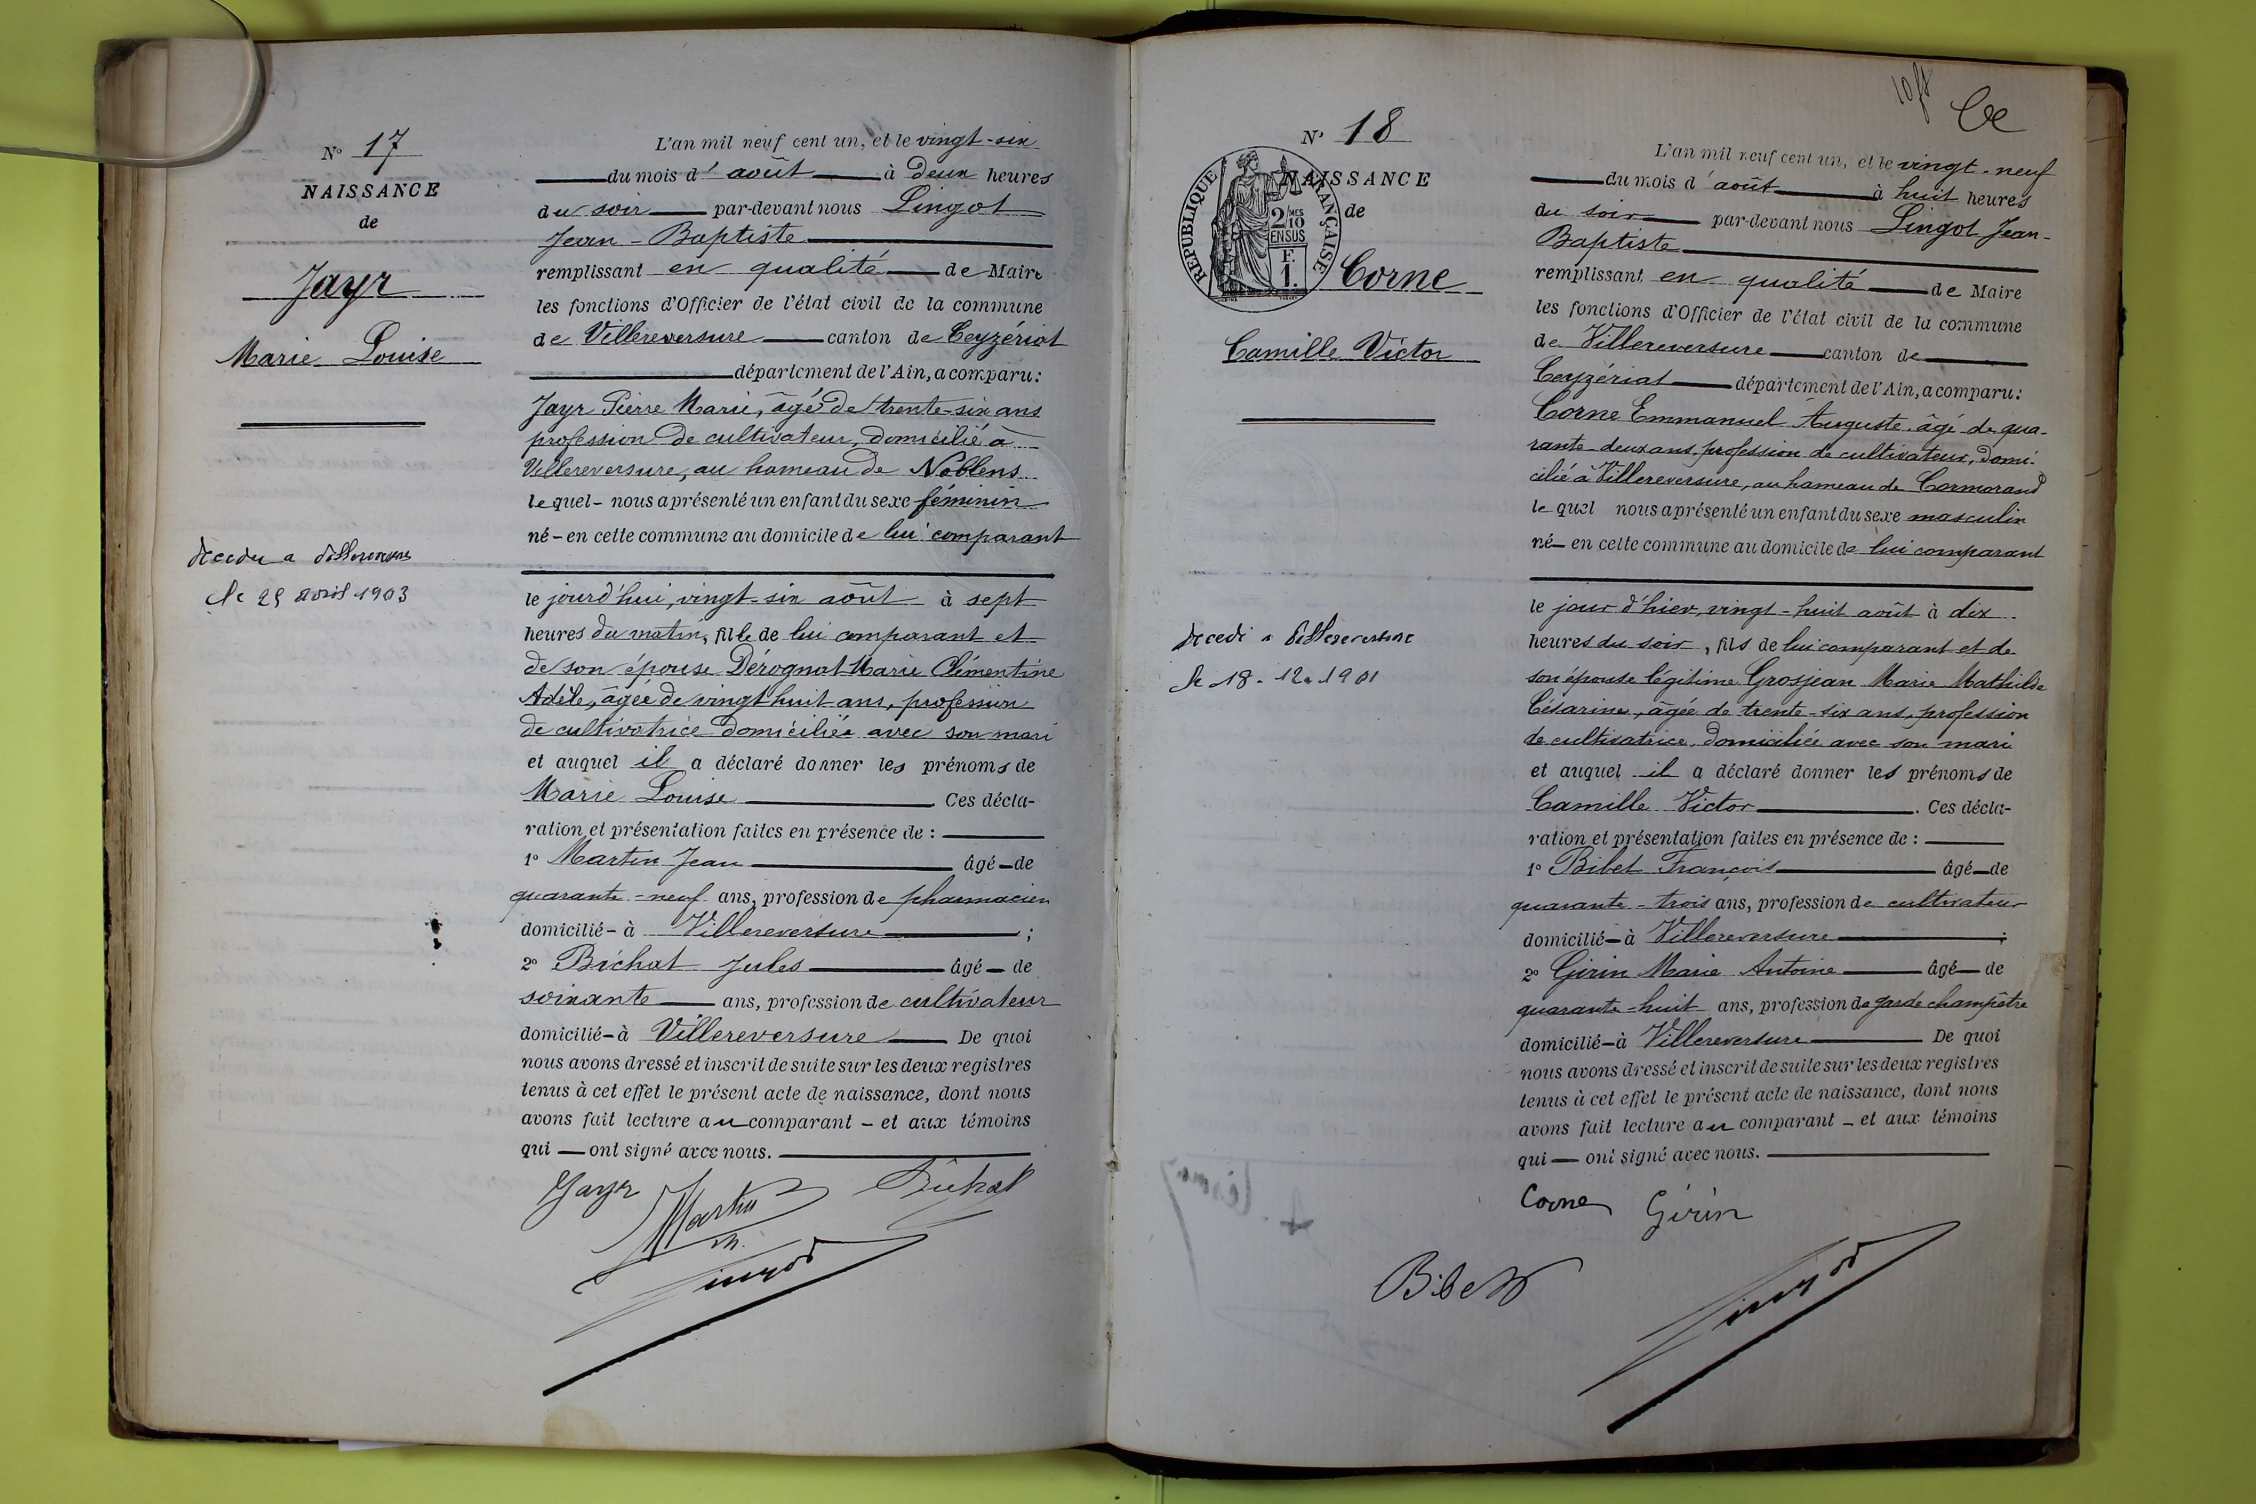 N° 17
NAISSANCE
de
Jayr
Marie Louise
le 29 avril 1903
L'an mil neuf cent un, et le vingt-six
du mois d'août à deux heures
du soir par-devant nous Lingot
Jean-Baptiste
remplissant en qualité de Maire
les fonctions d'Officier de l'état civil de la commune
de Villereversure canton de Ceyzériat
département de l'Ain, a comparu:
Jayr Pierre Marie, âgé de trente-six ans
profession de cultivateur, domicilié à
Villereversure, au hameau de Noblens
lequel - nous a présenté un enfant du sexe féminin
né - en cette commune au domicile de lui comparant
le jourd'hui, vingt-six août à sept
heures du matin, fille de lui comparant et
de son épouse Dérognat Marie Clémentine
Adèle, âgée de vingt huit ans, profession
de cultivatrice domiciliée avec son mari
et auquel il a déclaré donner les prénoms de
Marie Louise Ces décla-
ration et présentation faites en présence de :
1° Martin Jean âgé - de
quarante-neuf ans, profession de pharmacien
domicilié - à Villereversure ;
2° Bichat Jules âgé - de
soixante ans, profession de cultivateur
domicilié - à Villereversure De quoi
nous avons dressé et inscrit de suite sur les deux registres
tenus à cet effet le présent acte de naissance, dont nous
avons fait lecture au comparant - et aux témoins
qui - ont signé avec nous.
Jayr Martin Bichat
Lingot
10 f
N° 18
NAISSANCE
de
RÉPUBLIQUE FRANÇAISE
2/10
EN SUS
F.
1.
Corne
Camille Victor
décédé à Villereversure
le 18-12-1901
L'an mil neuf cent un, et le vingt-neuf
du mois d'août à huit heures
du soir par-devant nous Lingot Jean-
Baptiste
remplissant en qualité de Maire
les fonctions d'Officier de l'état civil de la commune
de Villereversure canton de
Ceyzériat département de l'Ain, a comparu:
Corne Emmanuel Auguste âgé de qua-
rante-deux ans, profession de cultivateur, domi-
cilié à Villereversure, au hameau de Cormorand
lequel nous a présenté un enfant du sexe masculin
né - en cette commune au domicile de lui comparant
le jour d'hier, vingt-huit août à dix
heures du soir, fils de lui comparant et de
son épouse légitime Grosjean Marie Mathilde
Césarine, âgée de trente-six ans, profession
de cultivatrice, domiciliée avec son mari
et auquel il a déclaré donner les prénoms de
Camille Victor . Ces décla-
ration et présentation faites en présence de :
1° Bibet François âgé - de
quarante-trois ans, profession de cultivateur
domicilié - à Villereversure ;
2° Girin Marie Antoine âgé - de
quarante-huit ans, profession de garde champêtre
domicilié - à Villereversure De quoi
nous avons dressé et inscrit de suite sur les deux registres
tenus à cet effet le présent acte de naissance, dont nous
avons fait lecture au comparant - et aux témoins
qui - ont signé avec nous.
Corne Girin
Bibet Lingot